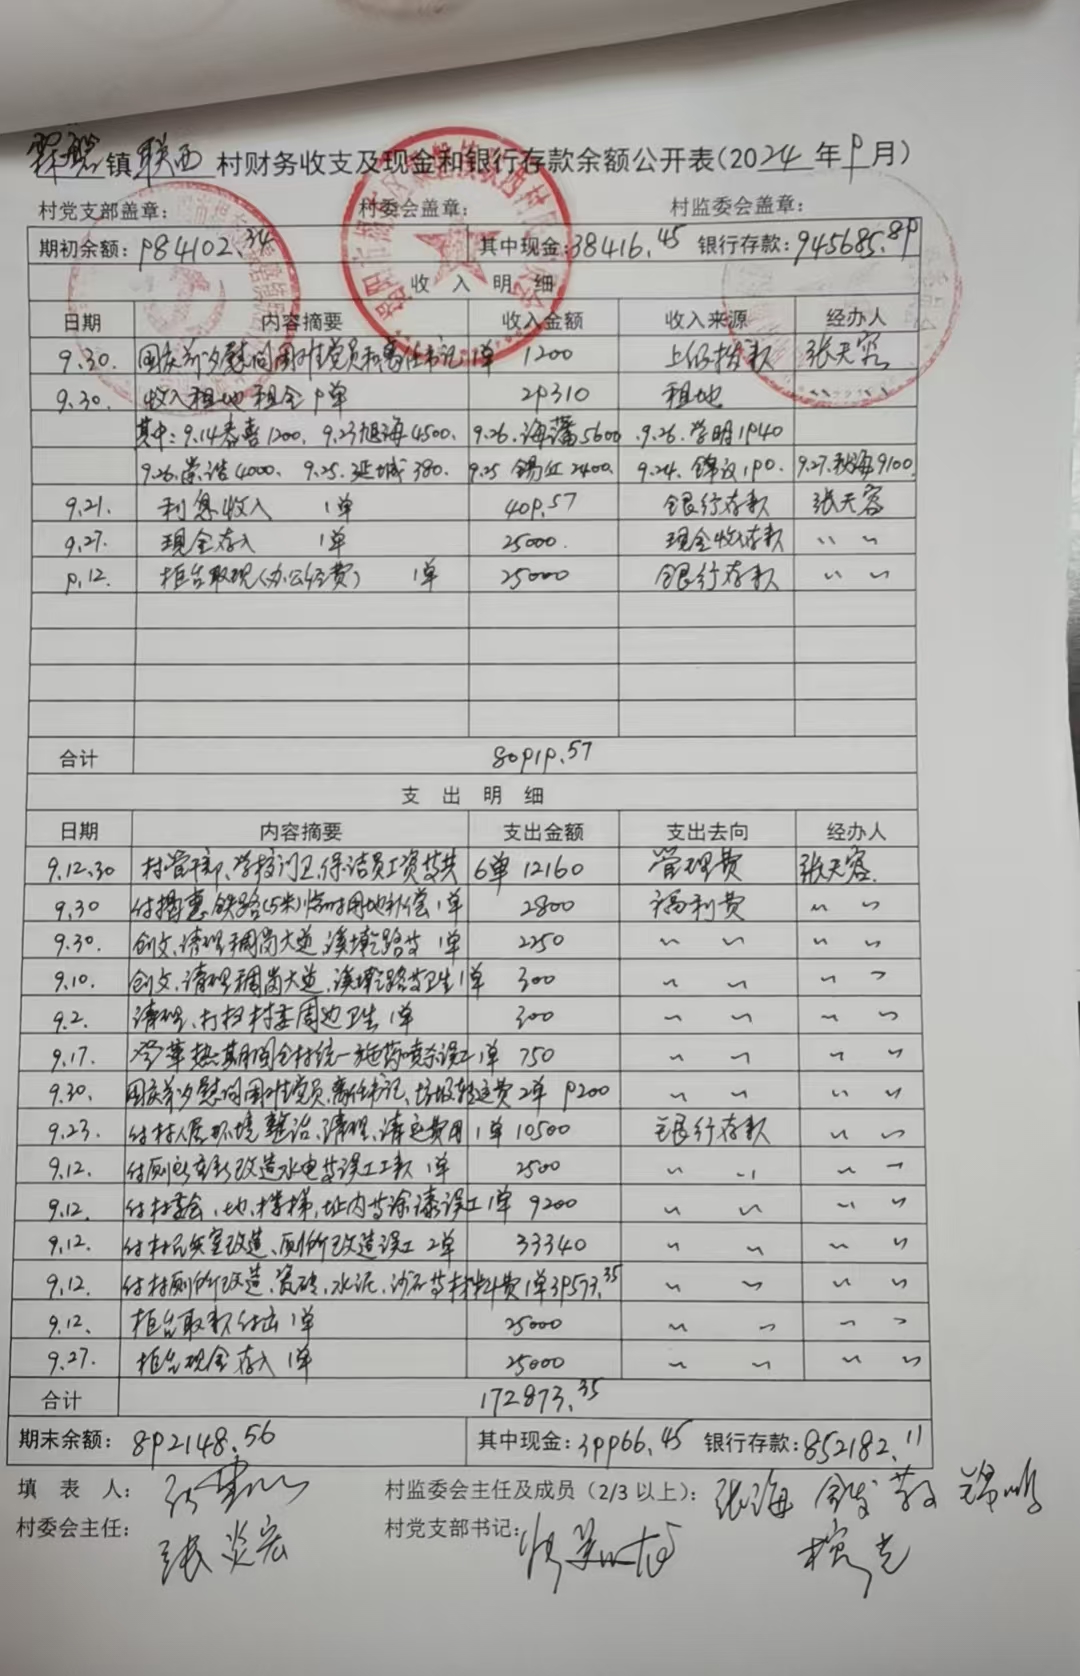 霖磐镇联西村财务收支及现金和银行存款余额公开表(2024年9月)
村党支部盖章: 村委会盖章: 村监委会盖章:
期初余额:984102.34 其中现金:38416.45 银行存款:945685.89
收入明细
日期 内容摘要 收入金额 收入来源 经办人
9.30. 国庆前夕慰问困难党员和离任书记1单 1200 上级拨款 张天容
9.30. 收入租地租金9单 29310 租地 〃 〃
其中:9.14 春喜1200. 9.23旭海4500. 9.26.海藩5600. 9.26.学明1940
9.26.崇浩4000. 9.25.延城380. 9.25 锡红2400. 9.24. 190. 9.27.秋海9100.
9.21. 利息收入 1单 409.57 银行存款 张天容
9.27. 现金存入 1单 25000. 现金收存款 〃 〃
9.12. 柜台取现(办公经费) 1单 25000 银行存款 〃 〃
合计 80919.57
支出明细
日期 内容摘要 支出金额 支出去向 经办人
9.12.30 村管干部、学校门卫、保洁员工资等共6单 12160 管理费 张天容.
9.30 付揭惠铁路(5米)临时用地补偿1单 2800 福利费 〃 〃
9.30. 创文、清理稠岗大道、溪墘路等1单 2250 〃 〃 〃 〃
9.10. 创文、清理稠岗大道、溪墘路等卫生1单 300 〃 〃 〃 〃
9.2. 清理、打扫村委周边卫生1单 300 〃 〃 〃 〃
9.17. 登革热期间全村统一施药喷杀误工1单 750 〃 〃 〃 〃
9.30. 国庆前夕慰问困难党员、离任书记、垃圾转运费2单 9200 〃 〃 〃 〃
9.23. 付村人居环境整治、清理、清运费用1单 10500 银行存款 〃 〃
9.12. 付厕所重新改造水电等误工工款1单 2500 〃 〃 〃 〃
9.12. 付村委会、地、楼梯、址内等涂漆误工1单 9200 〃 〃 〃 〃
9.12. 付村改造、厕所改造误工2单 33340 〃 〃 〃 〃
9.12. 付村厕所改造、瓷砖、水泥、沙石等材料费1单 39573.35 〃 〃 〃 〃
9.12. 柜台取款付出1单 25000 〃 〃 〃 〃
9.27. 柜台现金存入1单 25000 〃 〃 〃 〃
合计 172873.35
期末余额:892148.56 其中现金:39966.45 银行存款:852182.11
填表人: 村监委会主任及成员(2/3以上): 张海
村委会主任: 张炎宏 村党支部书记: